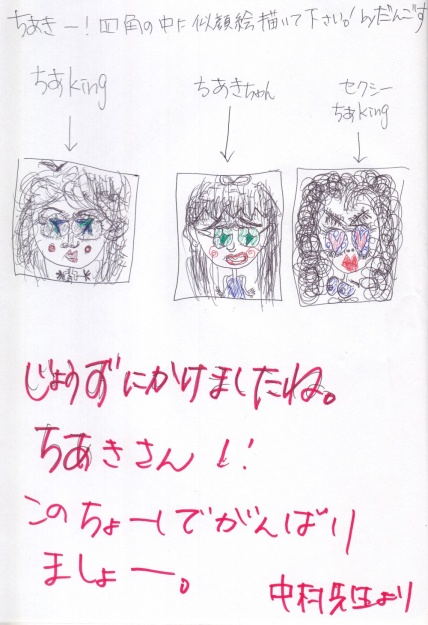 ちあきー！四角の中に似顔絵描いて下さい。！byだんごす
ちあking
ちあきちゃん
セクシー
ちあking
じょうずにかけましたね。
ちあきさん！！
このちょーしでがんばり
ましょー。
中村先生より